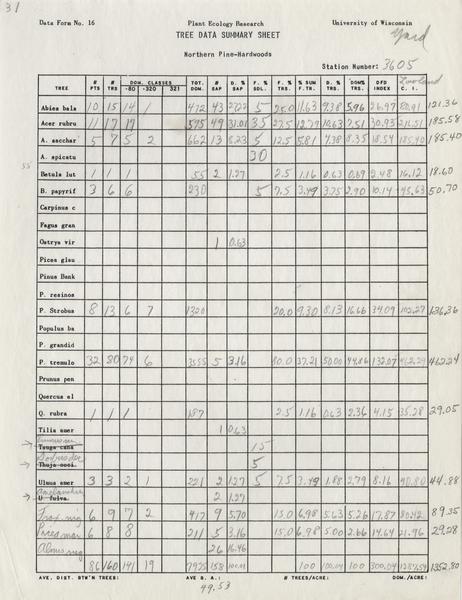 31
Data Form No. 16 Plant Ecology Research University of Wisconsin
TREE DATA SUMMARY SHEET Yard
Northern Pine-Hardwoods
Station Number: 3605
TREE # PTS # TRS DOM. CLASSES -80 -320 321 TOT. DOM # SAP D. % SAP F % SDL. F % TRS. % SUM F.TR. D. % TRS. DOM% TRS. DFD INDEX Lowland C. I.
Abies bala 10 15 14 1 472 43 27.22 5 25.0 11.63 9.38 5.96 26.97 80.91 121.36
Acer rubru 11 17 17 595 49 31.01 35 27.5 12.79 10.63 7.51 30.93 185.58
A. sacchar 5 7 5 2 662 13 8.23 5 12.5 5.81 4.38 8.35 18.54 185.40 185.40
A. spicatu 30
55
Betula lut 1 1 1 55 2 1.27 2.5 1.16 0.63 0.69 2.48 16.12 18.60
B. papyrif 3 6 6 230 5 7.5 3.49 3.75 2.90 10.14 45.63 50.70
Carpinus c
Fagus gran
Ostrya vir 1 0.63
Picea glau
Pinus Bank
P. resinos
P. Strobus 8 13 6 7 1320 20.0 9.30 8.13 16.66 34.09 102.27 136.36
Populus ba
P. grandid
P. tremulo 32 80 74 6 3555 5 3.16 80.0 37.21 50.00 44.86 132.07 462.24
Prunus pen
Quercus el
Q. rubra 1 1 1 187 2.5 1.16 0.63 2.36 4.15 35.28 29.05
Tilia amer 1 0.63
Tsuga cana 15
Thuja occi. 5
Ulmus amer 3 3 2 1 221 2 1.27 5 7.5 3.49 1.88 2.79 8.16 40.80 44.88
U fulva. 2 1.27
Frax. nig 6 9 7 2 417 9 5.70 15.0 6.98 5.63 5.26 17.87 80.42 89.35
Picea mar 6 8 8 211 5 3.16 15.0 6.98 5.00 2.66 14.64 21.96 29.28
Alnus rug 26 16.46
86 160 141 19 7925 158 100 100.04 100 300.04 1352.80
AVE. DIST. BTW'N TREES: AVE B. A.: # TREES/ACRE: DOM./ACRE:
49.53